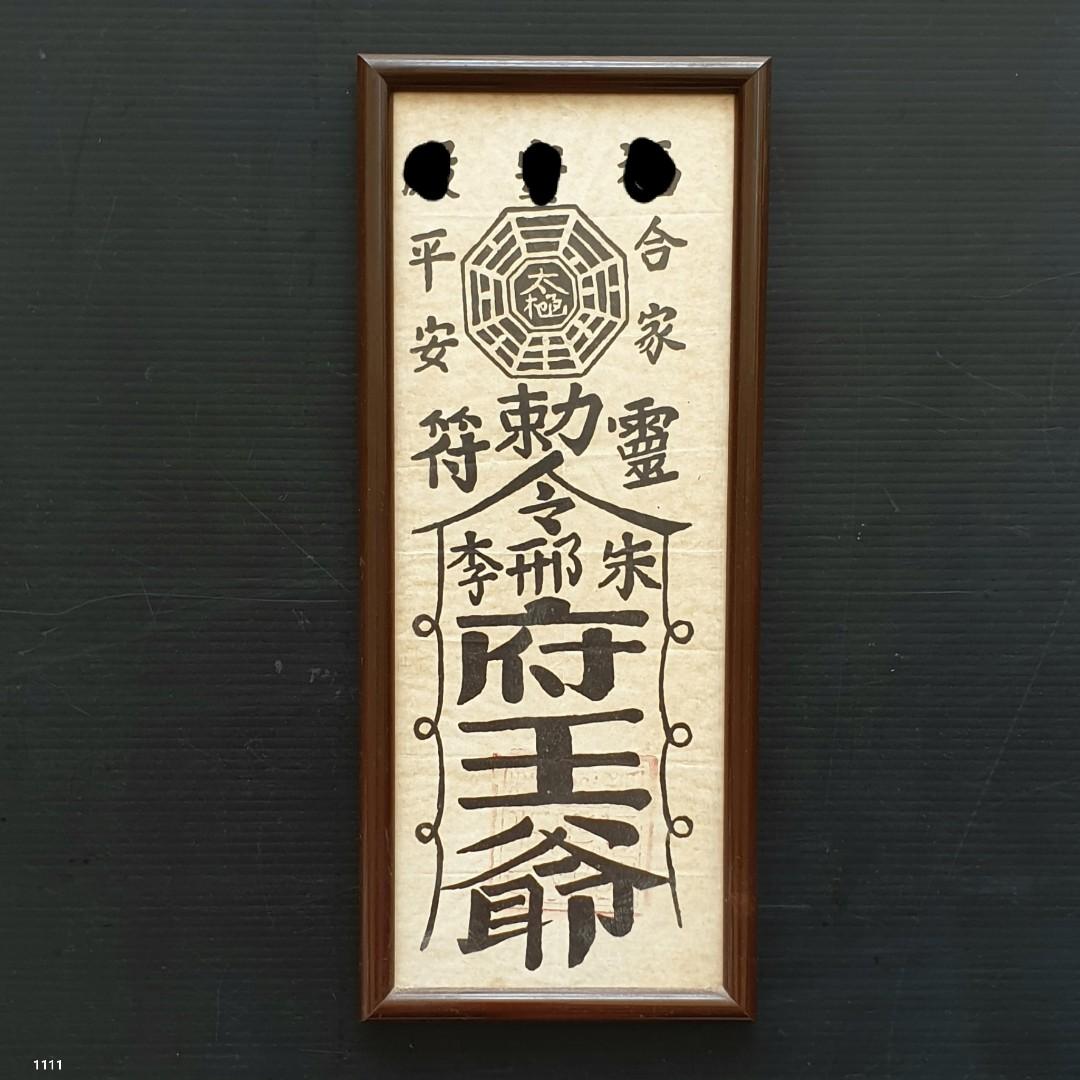 合家平安
太極
靈符
勅令
朱邢李
府王爺
1111